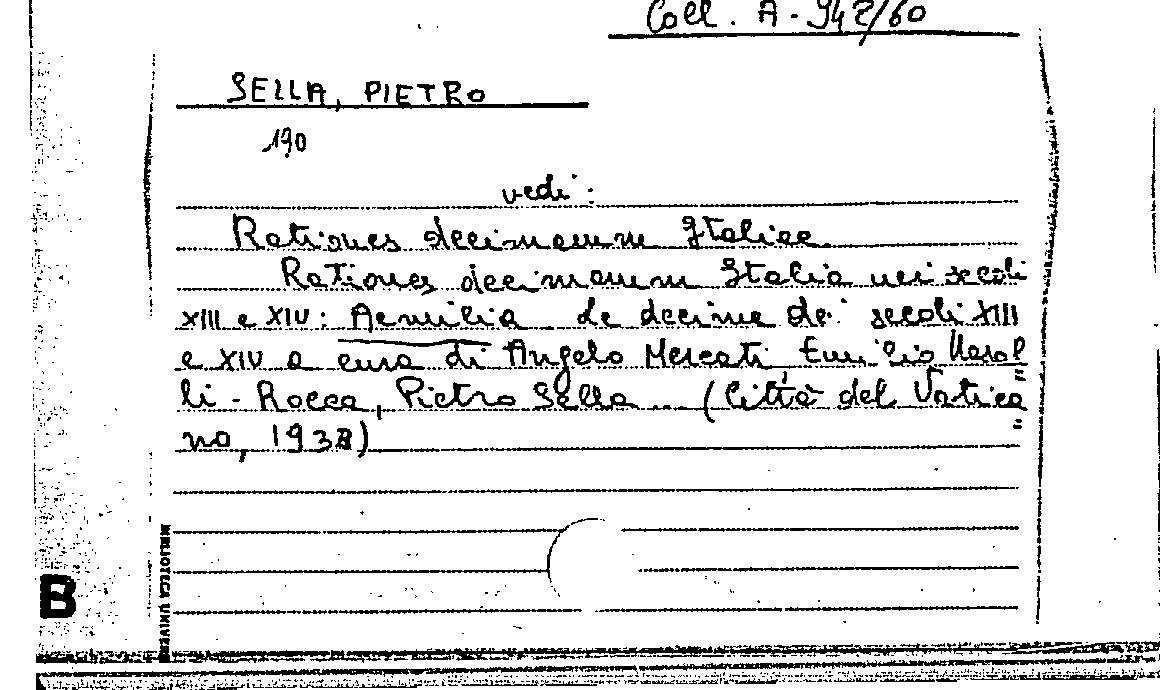 Coll. A-942/60
SELLA, PIETRO
190
vedi:
Rationes decimarum Italiae.
Rationes decimarum Italia nei secoli
XIII e XIV: Aemilia le decime dei secoli XIII
e XIV a cura di Angelo Mercati Emilio Nasal
li-Rocca, Pietro Sella ... (Città del Vatica=
no, 1933)
B
BIBLIOTECA UNIVERS